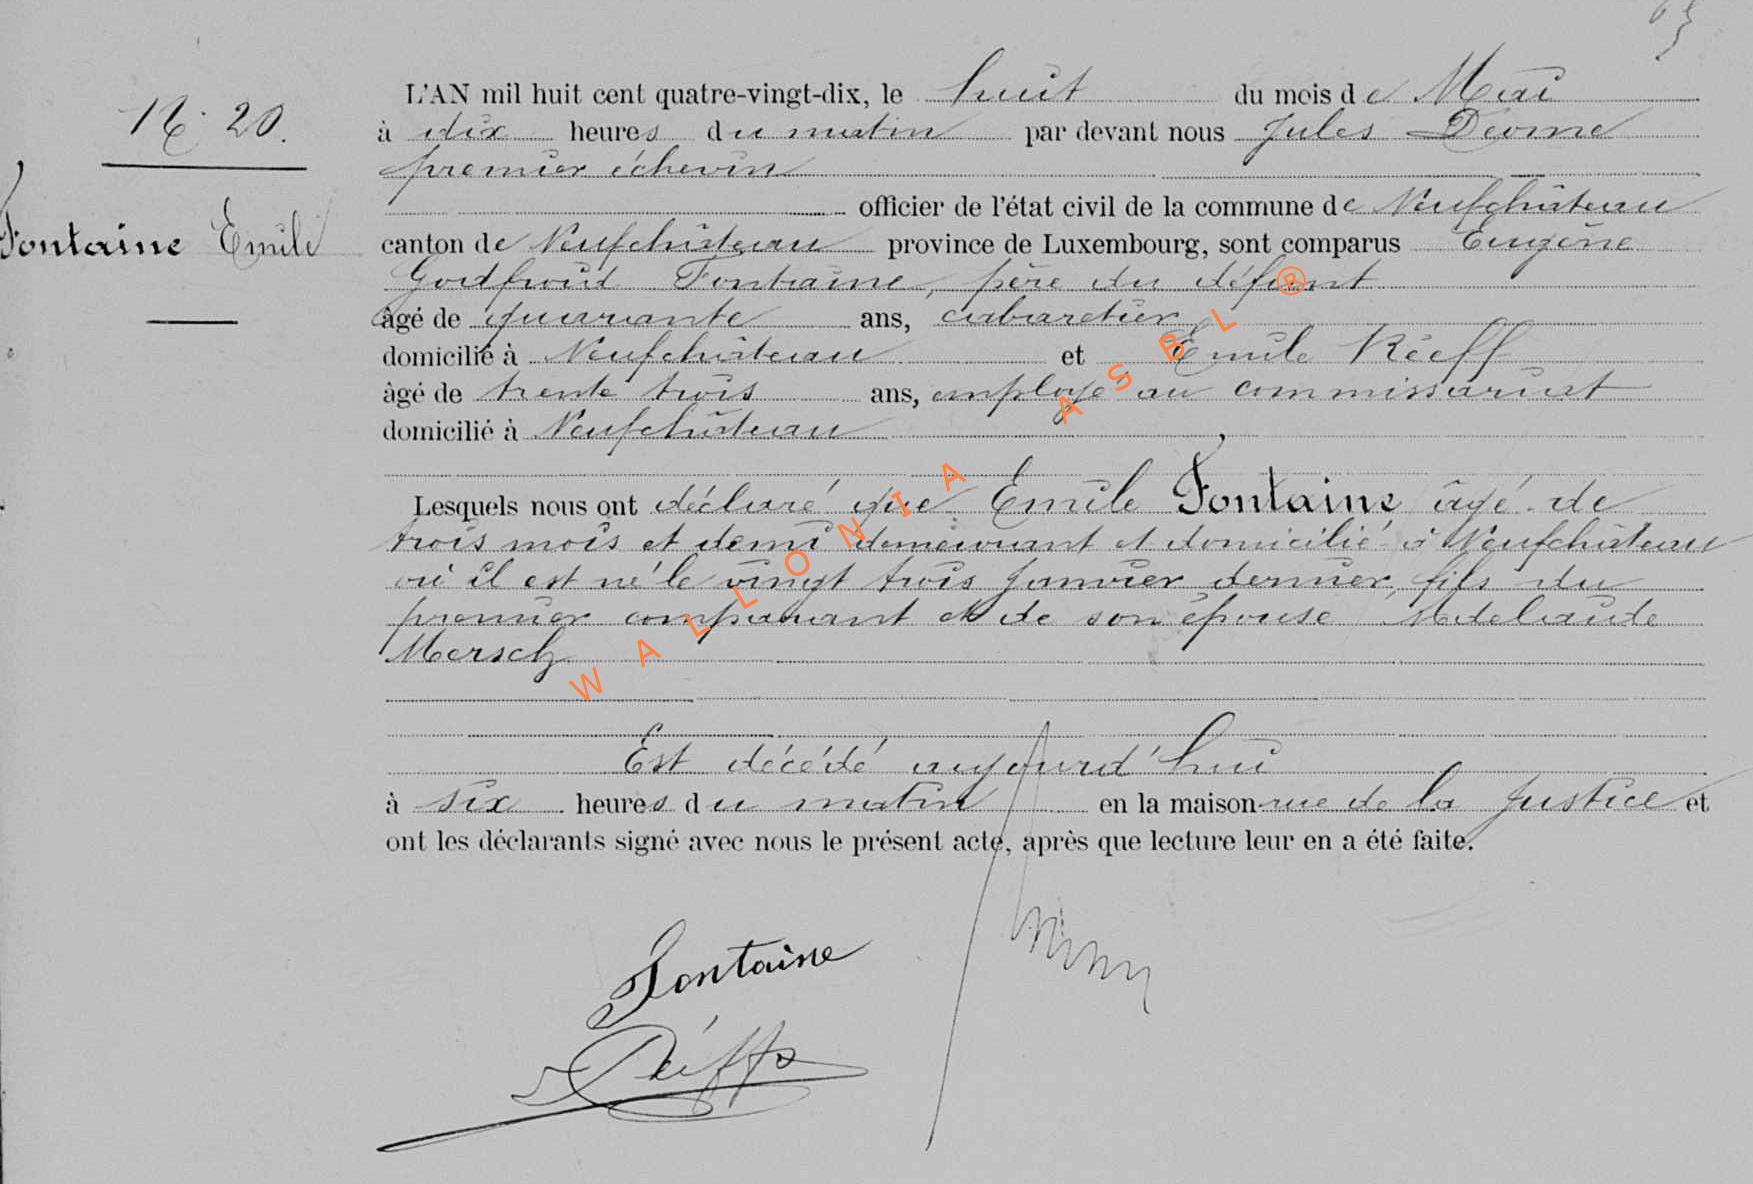 63
N. 20.
Fontaine Emile
L'AN mil huit cent quatre-vingt-dix, le huit du mois de Mai
à dix heures du matin par devant nous Jules
premier échevin
officier de l'état civil de la commune de Neufchâteau
canton de Neufchâteau province de Luxembourg, sont comparus Eugène
Godfroid Fontaine, père du défunt
âgé de quarante ans, cabaretier
domicilié à Neufchâteau et Emile Réeff
âgé de trente trois ans, employé au commissariat
domicilié à Neufchâteau
Lesquels nous ont déclaré que Emile Fontaine âgé de
trois mois et demi demeurant et domicilié à Neufchâteau
où il est né le vingt trois janvier dernier, fils du
premier comparant et de son épouse Adelaïde
Mersch
Est décédé aujourd'hui
à six heures du matin en la maison rue de la Justice et
ont les déclarants signé avec nous le présent acte, après que lecture leur en a été faite.
Fontaine
WALLONIA ASBL ®